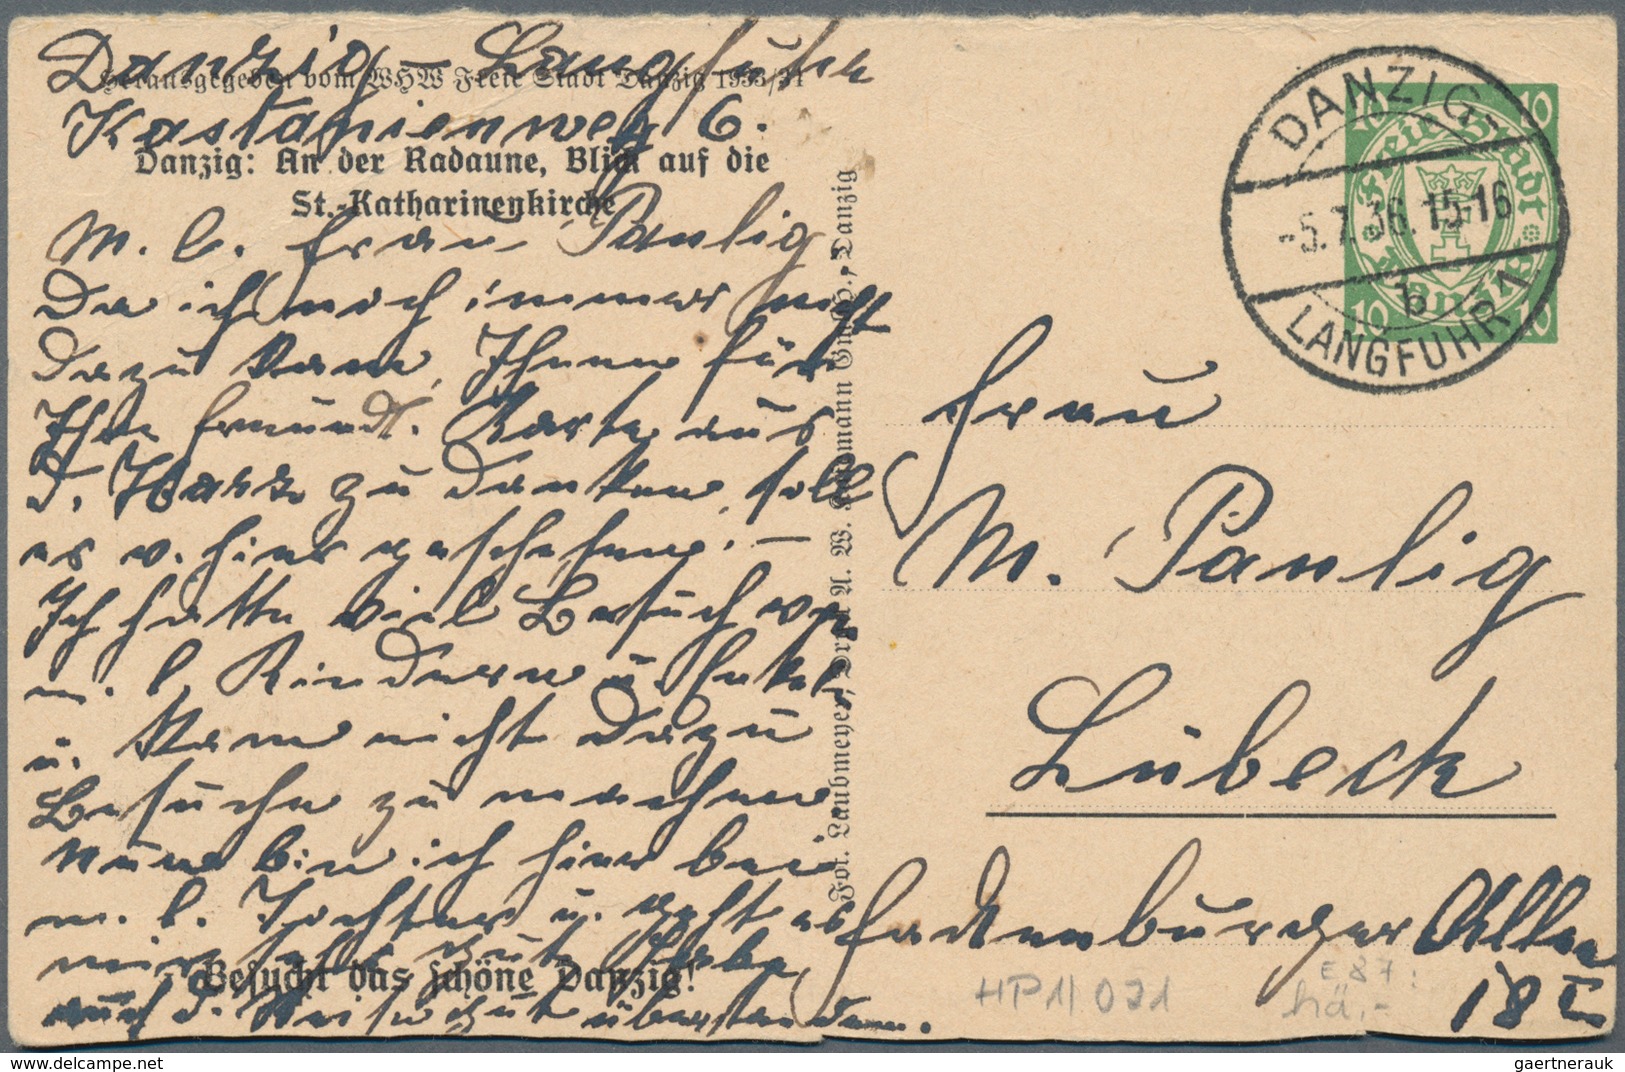 Danzig – Langfuhr
Herausgegeben vom WHW Freie Stadt Danzig 1933/34
Kastanienweg 6.
Danzig: An der Radaune, Blick auf die
St.-Katharinenkirche
M. l. Frau Paulig
Da ich noch immer nicht
dazu kam, Ihnen für
Ihre freundl. Karte aus
d. Harz zu danken, soll
es v. hier geschehen. –
Ich hatte viel Besuch von
m. l. Kindern u. Enkel
u. kam nicht dazu
Besuche zu machen
Nun bin ich hier bei
m. l. Tochter u. geht es
mir sehr gut. Habe
Besucht das schöne Danzig!
auch d. Reise gut überstanden.
Fot. Laubmeyer, Druck A. W. Kafemann G.m.b.H., Danzig
DANZIG-
-5.7.36.15-16
b
LANGFUHR 1
10 10
Freie Stadt
Danzig
10 10
Frau
M. Paulig
Lübeck
Fackenburger Allee
18 I
HP1/ 021
E 87:
hä,-
gaertnerauk